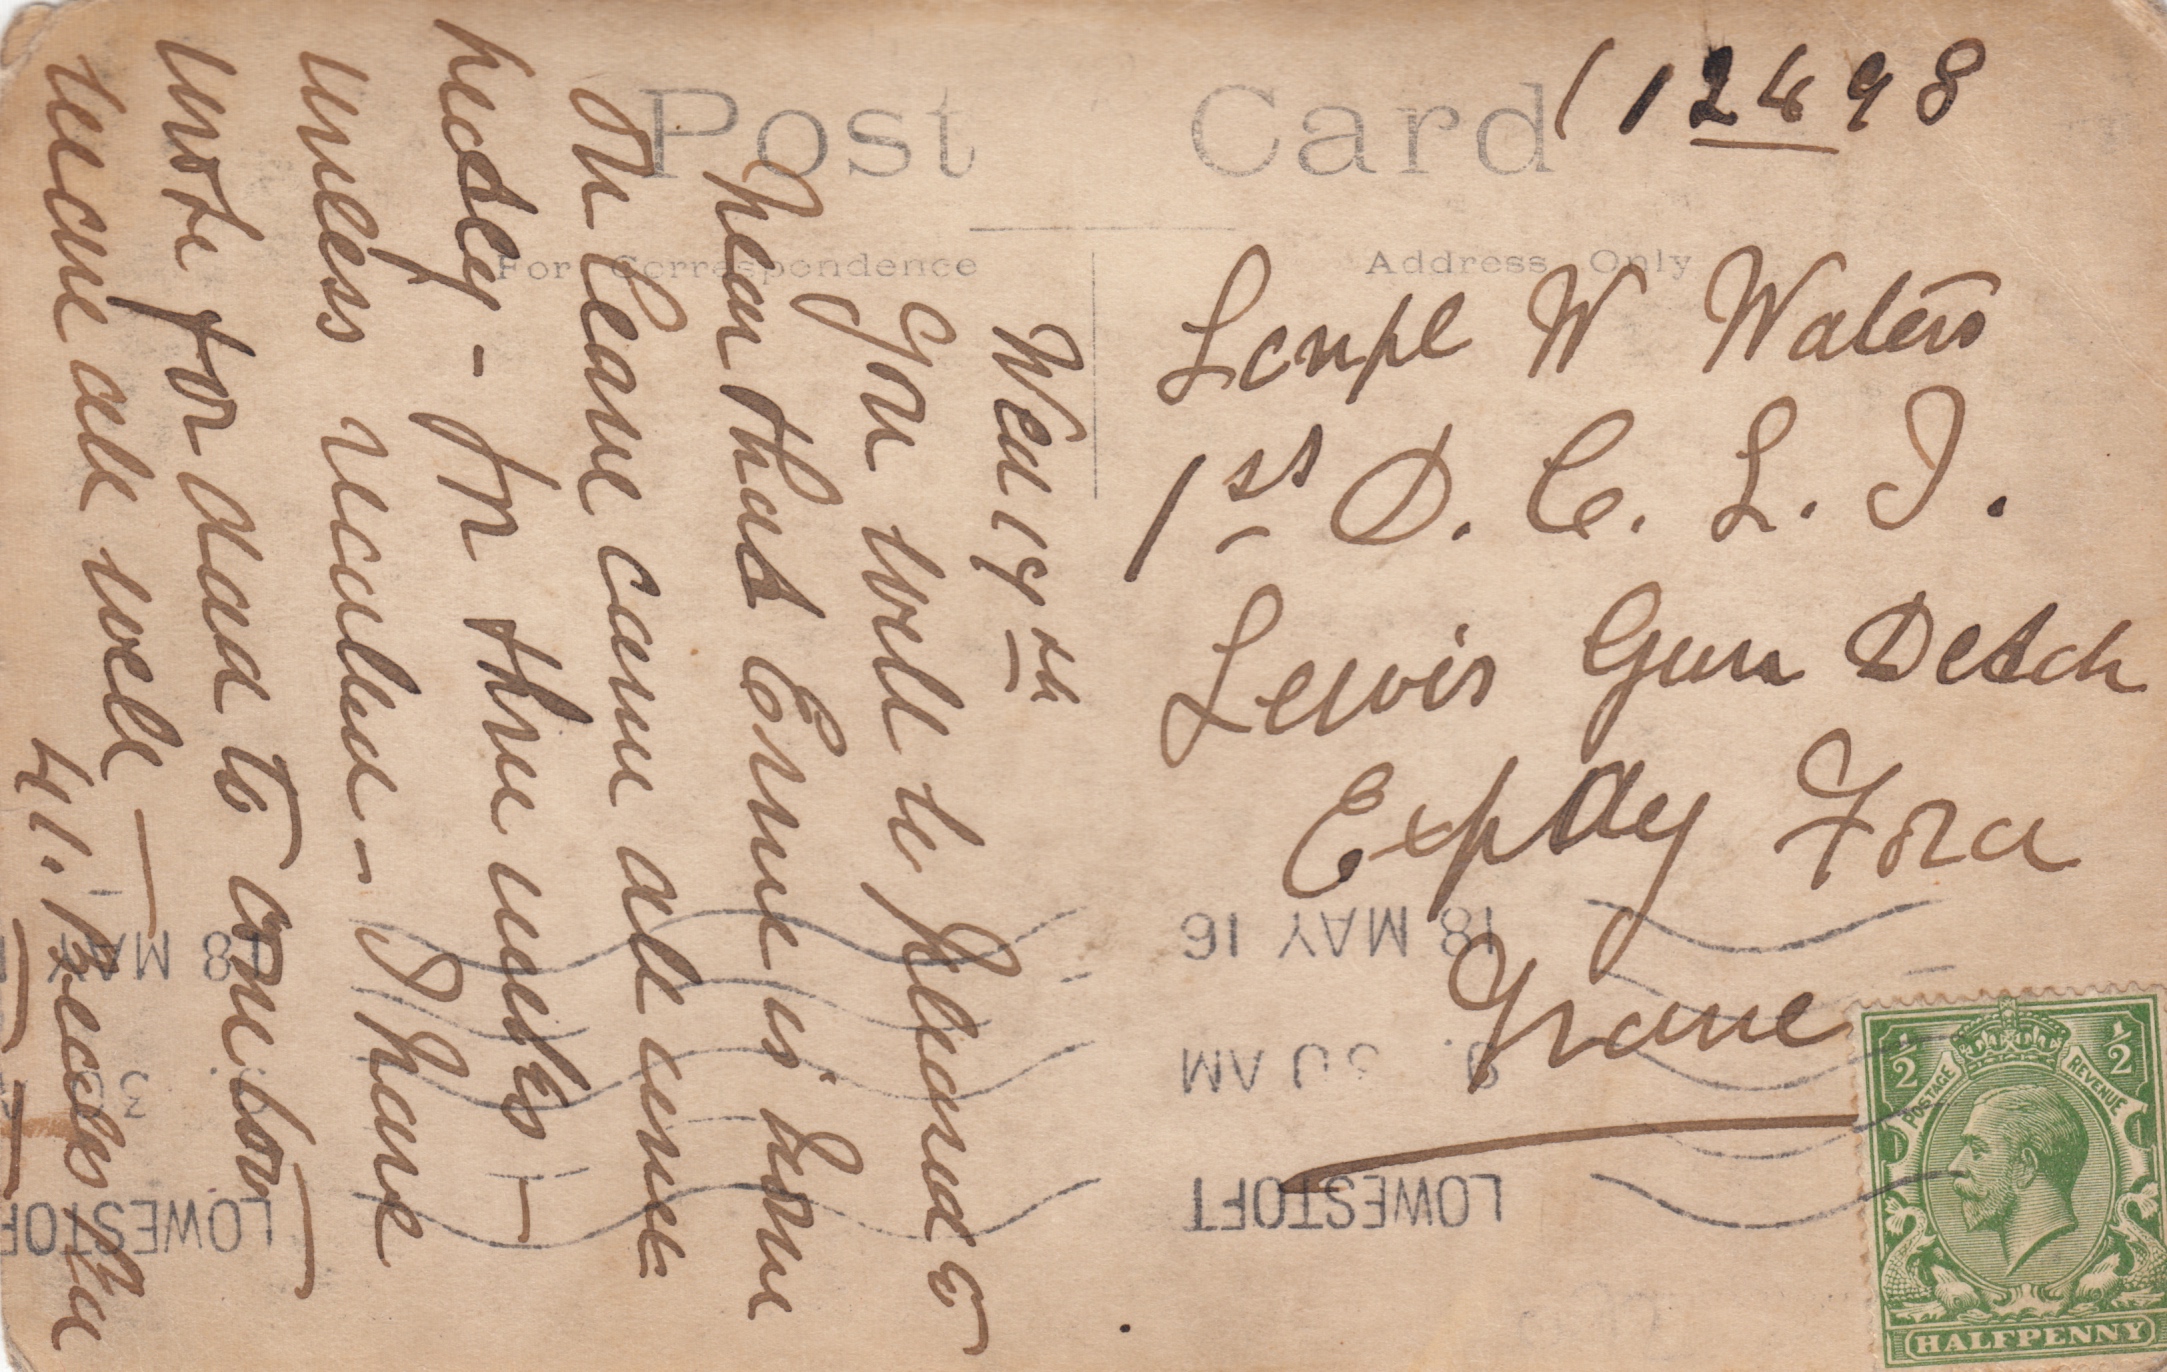 Post Card
For Correspondence
Address Only
12498
Lcorpl W Waters
1st D. C. L. I.
Lewis Gun Detch
Exp
France
Wed 17th
You will be pleased to
hear that Ernie is home
on leave came all
- for three weeks -
unless recalled - I have
wrote for dad to come
are all well
41. Beccles Rd
18 MAY 16
30 AM
LOWESTOFT
18 MAY
3
LOWESTOF
½ ½
POSTAGE REVENUE
HALFPENNY